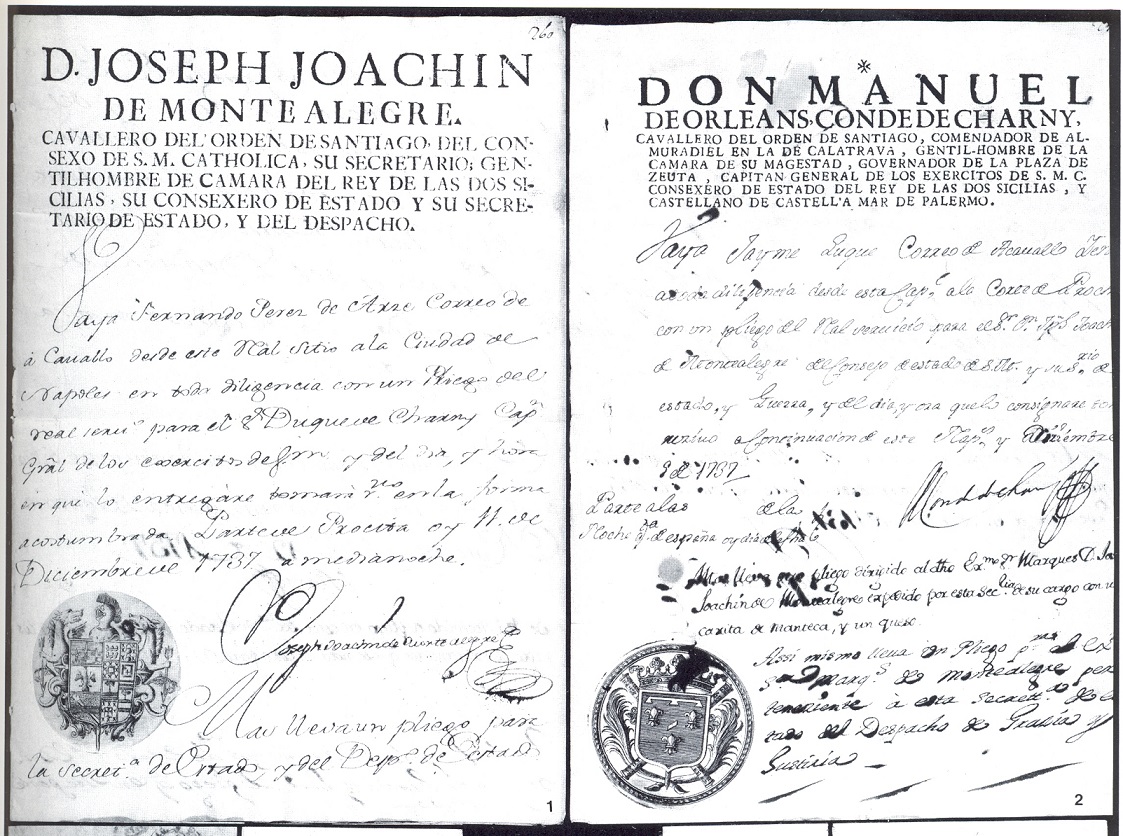 260
D. JOSEPH JOACHIN
DE MONTEALEGRE.
CAVALLERO DEL'ORDEN DE SANTIAGO, DEL CON-
SEXO DE S. M. CATHOLICA, SU SECRETARIO; GEN-
TILHOMBRE DE CAMARA DEL REY DE LAS DOS SI-
CILIAS, SU CONSEXERO DE ESTADO Y SU SECRE-
TARIO DE ESTADO, Y DEL DESPACHO.
Vaya Fernando Perez de Correo de
à Cauallo desde este Rāl Sitio a la Ciudad de
Napoles en toda diligencia con un Pliego del
real seruº para el Sr Duque de Charny Capn
Grāl de los exercitos de S.m. y del dia, y hora
en que lo entregàre tomarà r.uo en la forma
acostumbrada Parte de Procita oy 11. de
Diciembre de 1737 a medianoche.
Joseph Joachin de Montealegre
Mas lleva un pliego para
la Secret.a de Estado y del Desp.o de Estado
1
DON MANUEL
DE ORLEANS, CONDE DE CHARNY,
CAVALLERO DEL ORDEN DE SANTIAGO, COMENDADOR DE AL-
MURADIEL EN LA DE CALATRAVA, GENTIL-HOMBRE DE LA
CAMARA DE SU MAGESTAD, GOVERNADOR DE LA PLAZA DE
ZEUTA, CAPITAN GENERAL DE LOS EXERCITOS DE S. M. C.
CONSEXERO DE ESTADO DEL REY DE LAS DOS SICILIAS, Y
CASTELLANO DE CASTELL'A MAR DE PALERMO.
Vaya Jayme Luque Correo de Acauallo
a toda diligencia desde esta Cap.l a la Corte de
con un pliego del Rāl seruicio para el S.r D.n Jph Joach
de Montealegre del Consejo de estado de S.M. y su S.rio de
estado, y Guerra, y del dia, y ora que lo consignare
reciuo a Continuacion de este Nap.s y Diziembre
9 de 1737
Parte a las de la
Noche de españa oy dia
Mas lleua pliego dirigido al dho Ex.mo S.r Marques D.
Joachin de Montealegre expedido por esta Sec.ria de su cargo con u
caxita de Manteca, y un queso.
Assi mismo lleua un Pliego p.a el
S.r Marq.s de montealegre per
teneciente à esta Secret.a de
tado del Despacho de Gracia y
Justicia
2